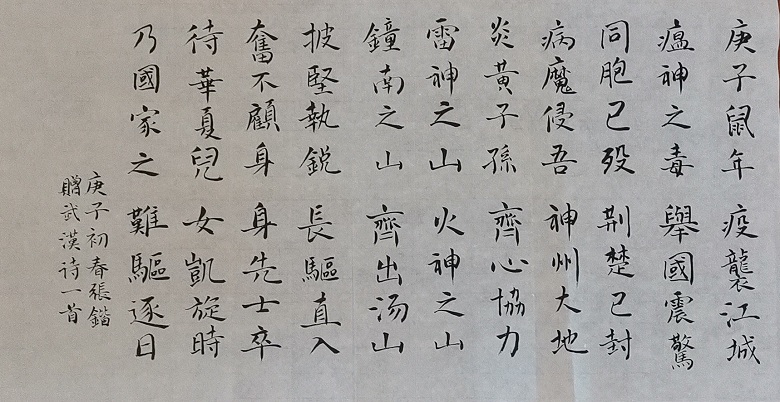 庚子鼠年 疫襲江城
瘟神之毒 舉國震驚
同胞已殁 荆楚已封
病魔侵吾 神州大地
炎黃子孫 齊心協力
雷神之山 火神之山
鐘南之山 齊出汤山
披堅執銳 長驅直入
奮不顧身 身先士卒
待華夏兒 女凱旋時
乃國家之 難驅逐日
庚子初春張鍇
贈武漢诗一首